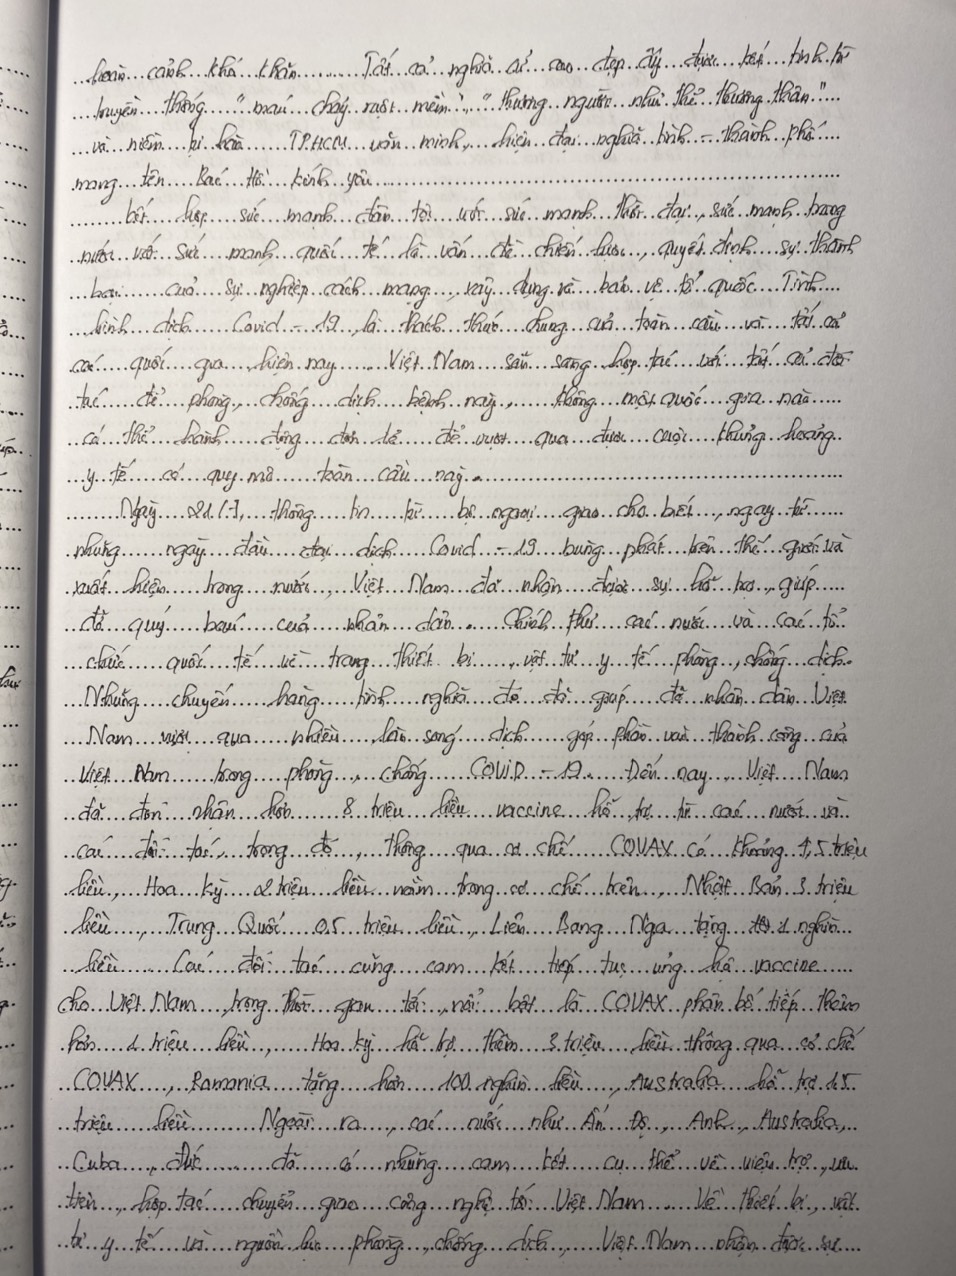 hoàn cảnh khó khăn. Tất cả nghĩa cử cao đẹp ấy được kết tinh từ
truyền thống "máu chảy ruột mềm", "thương người như thể thương thân"
và niềm tự hào TP.HCM văn minh, hiện đại nghĩa tình - thành phố
mang tên Bác Hồ kính yêu
kết hợp sức mạnh dân tộc với sức mạnh thời đại, sức mạnh trong
nước với sức mạnh quốc tế là vấn đề chiến lược, quyết định sự thành
bại của sự nghiệp cách mạng, xây dựng và bảo vệ tổ quốc. Tình
hình dịch Covid-19, là thách thức chung của toàn cầu và tất cả
các quốc gia hiện nay. Việt Nam sẵn sàng hợp tác với tất cả đối
tác để phòng, chống dịch bệnh này, không một quốc gia nào
có thể hành động đơn lẻ để vượt qua được cuộc khủng hoảng
y tế có quy mô toàn cầu này.
Ngày thông tin từ bộ ngoại giao cho biết, ngay từ
những ngày đầu đại dịch Covid-19 bùng phát trên thế giới và
xuất hiện trong nước, Việt Nam đã nhận được sự hỗ trợ, giúp
đỡ quý báu của nhân dân. Chính thủ các nước và các tổ
chức quốc tế về trang thiết bị, vật tư y tế phòng, chống dịch.
Những chuyến hàng tình nghĩa đó đã giúp đỡ nhân dân Việt
Nam vượt qua nhiều làn sóng dịch góp phần vào thành công của
Việt Nam trong phòng, chống COVID-19. Đến nay, Việt Nam
đã đón nhận hơn 8 triệu liều vaccine hỗ trợ từ các nước và
các đối tác, trong đó, thông qua cơ chế COVAX có khoảng 1,5 triệu
liều, Hoa kỳ 2 triệu liều nằm trong cơ chế trên, Nhật Bản 3 triệu
liều, Trung Quốc 0.5 triệu liều, Liên Bang Nga tặng 1 nghìn
liều. Các đối tác cũng cam kết tiếp tục ủng hộ vaccine
cho Việt Nam, trong thời gian tới, nổi bật là COVAX phân bổ tiếp thêm
hơn 1 triệu liều, Hoa kỳ hỗ trợ thêm 3 triệu liều thông qua cơ chế
COVAX, Romania tặng hơn 100 nghìn liều, Australia hỗ trợ 1.5
triệu liều. Ngoài ra, các nước như Ấn Độ, Anh, Australia,
Cuba, Đức đã có những cam kết cụ thể về viện trợ, ưu
tiên, hợp tác chuyển giao công nghệ tới Việt Nam. Về thiết bị, vật
tư y tế và nguồn lực phòng, chống dịch, Việt Nam nhận được sự